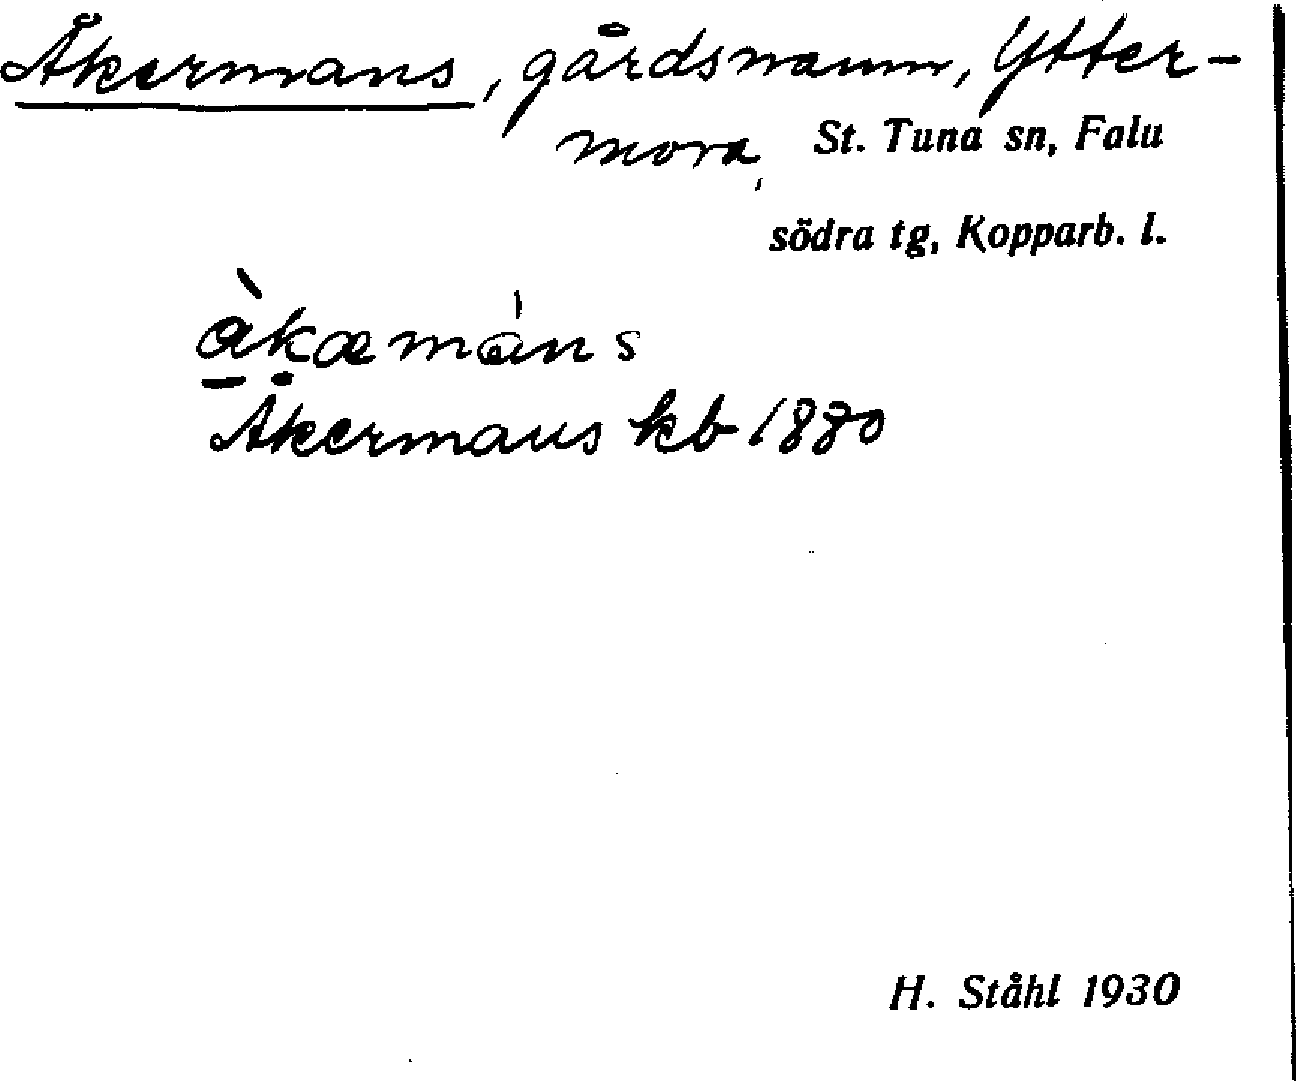 Åkermans, gårdsnamn, Ytter-
mora, St. Tuna sn, Falu
södra tg, Kopparb. l.
åkæmàns
Åkermans kb 1880
H. Ståhl 1930